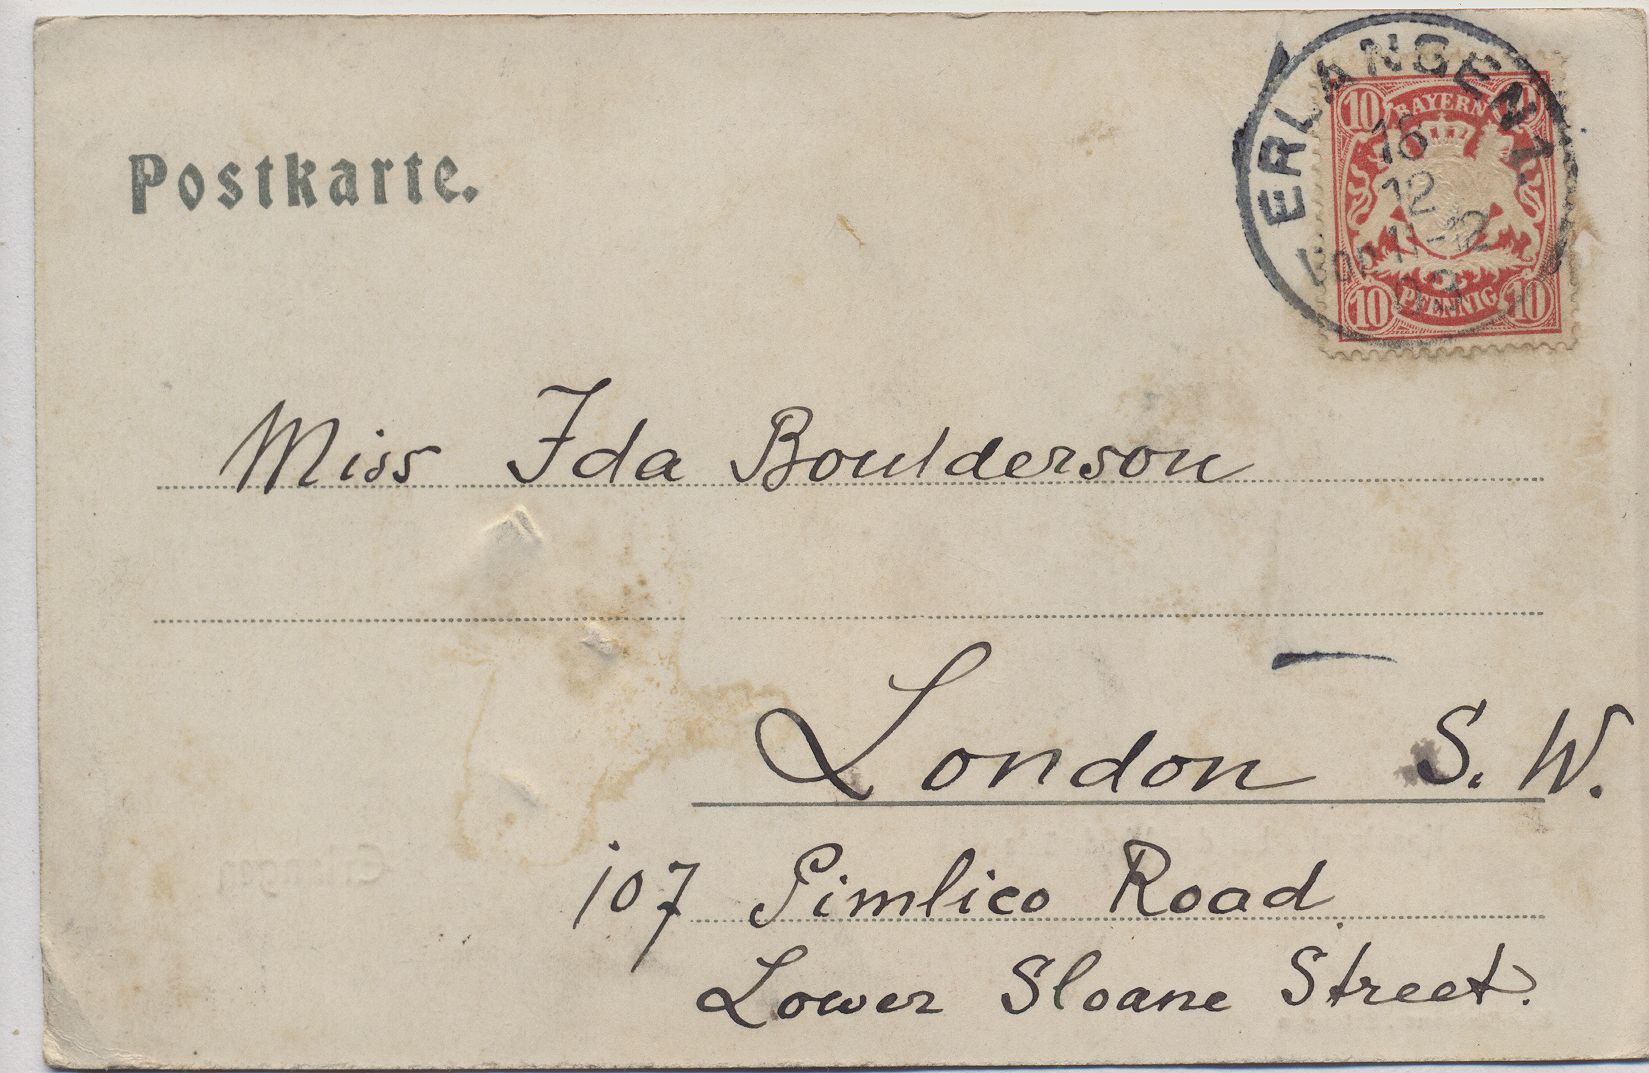 Postkarte.
ERLANGEN 1.
16
12
Vor. 11-12
03
10 BAYERN 10
10 PFENNIG 10
Miss Ida Boulderson
London S. W.
107 Pimlico Road
Lower Sloane Street.
Erlangen